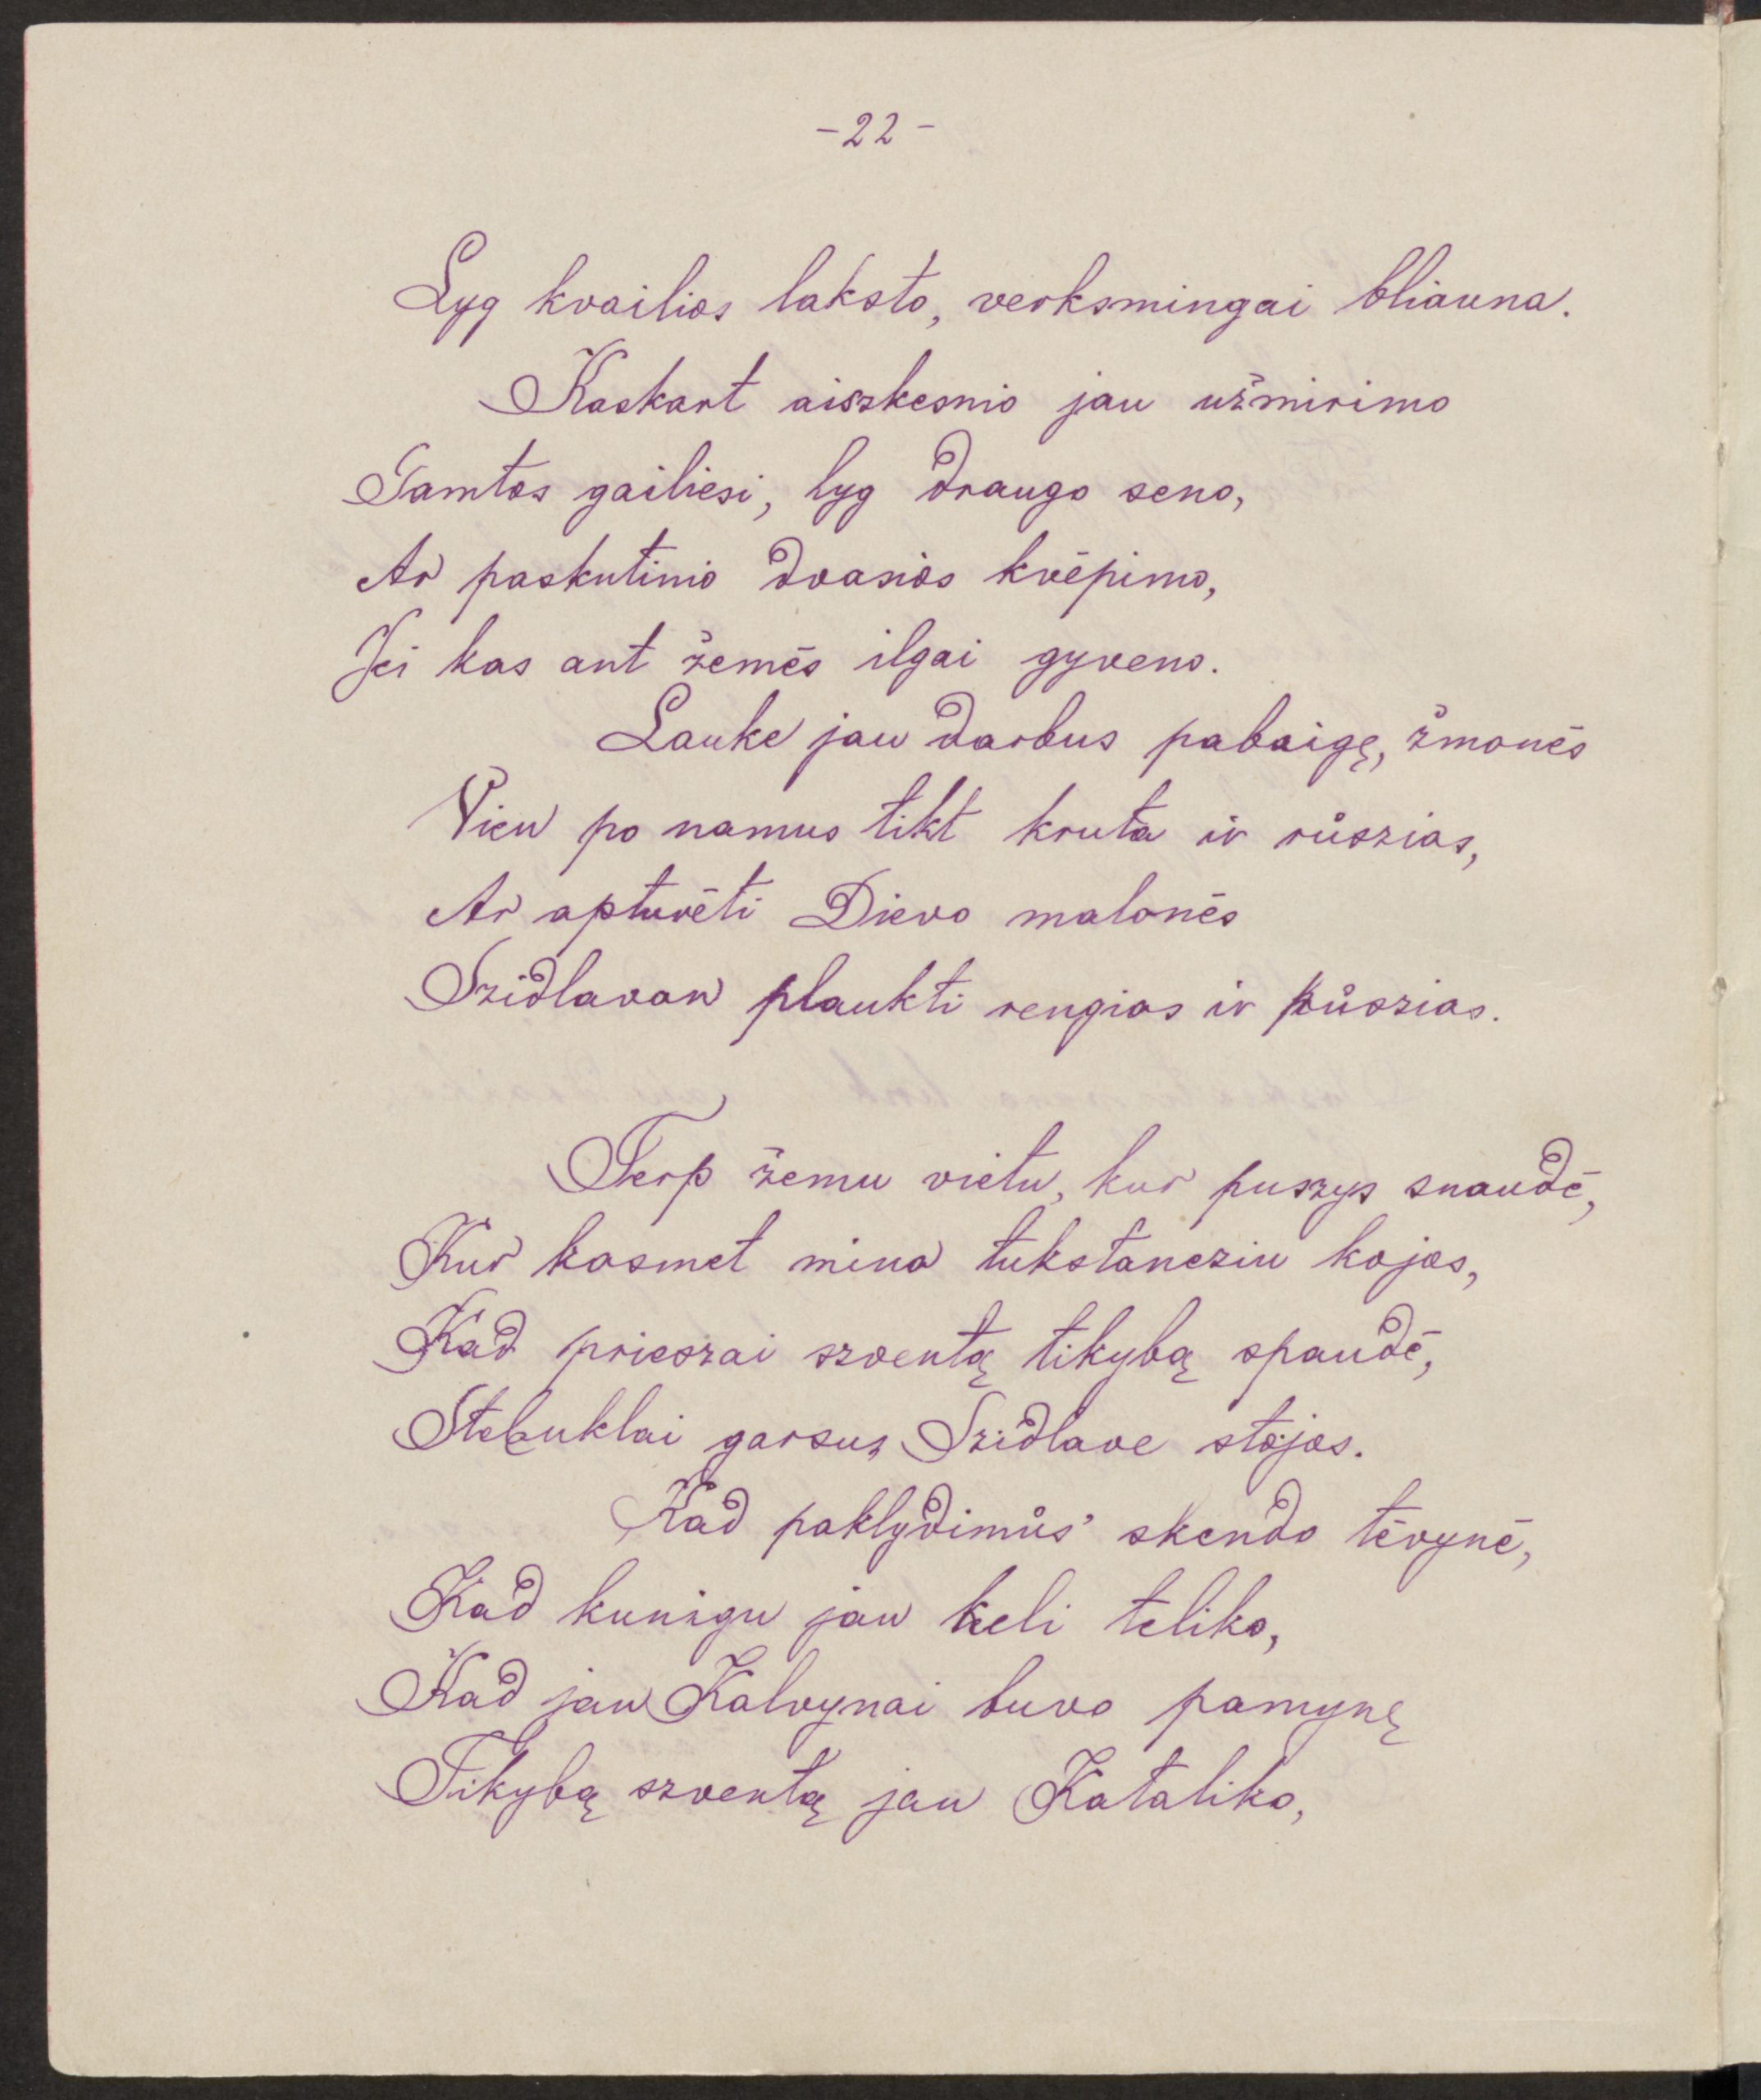 -22-
Lyg kvailios laksto, verksmingai bliauna.
Kaskart aiszkesnio jau užmirimo
Gamtos gailiesi, lyg draugo seno,
Ar paskutinio dvasios kvėpimo,
Jei kas ant žemės ilgai gyveno.
Lauke jau darbus pabaigę, žmonės
Vien po namus tikt kruta ir růszias,
Ar apturėti Dievo malonės
Szidlavan plaukti rengias ir půszias.
Terp žemu vietu, kur puszys snaudė,
Kur kasmet mina tukstancziu kojos,
Kad prieszai szventą tikybą spaudė,
Stebuklai garsus Szidlave stojos.
Kad paklydimůs' skendo tėvynė,
Kad kunigu jau keli teliko,
Kad jau Kalvynai buvo pamynę
Tikybą szventą jau Kataliko,